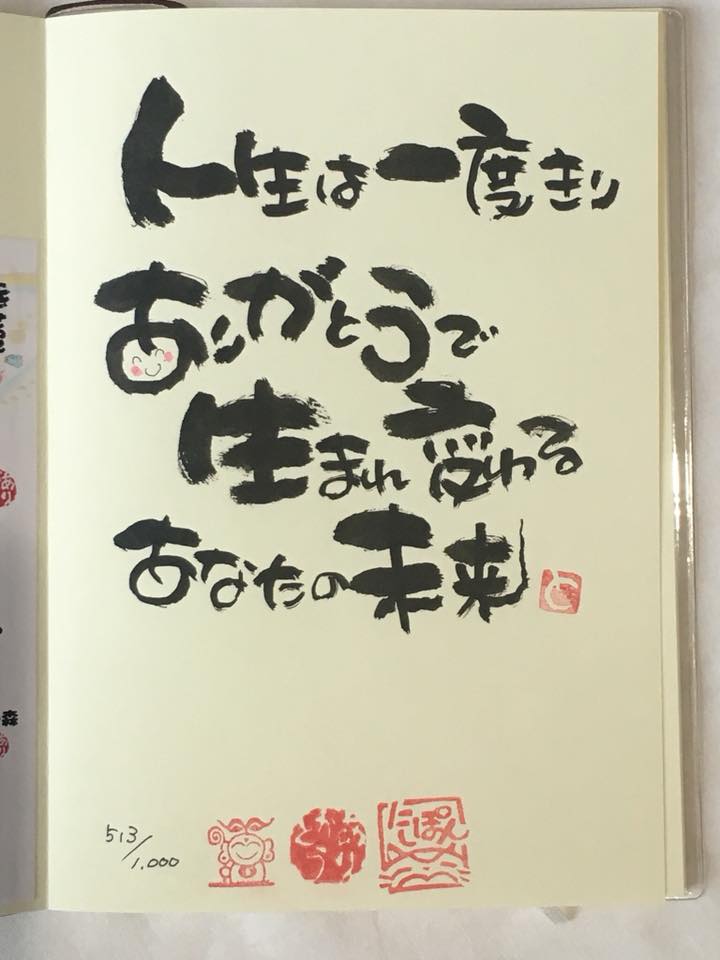 人生は一度きり
ありがとうで
生まれ変わる
あなたの未来
513/1.000
にしぽん
森